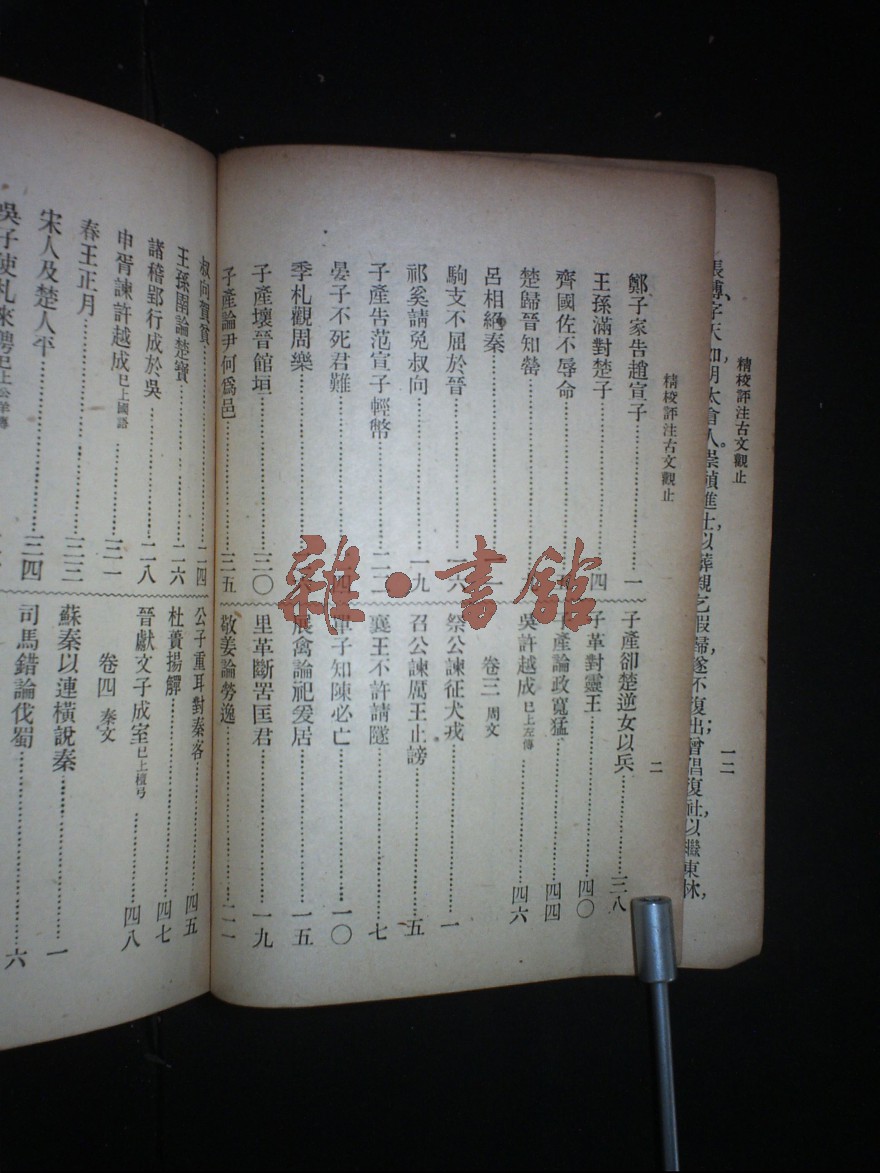 精校評注古文觀止
一二
張溥字天如,明太倉人,崇禎進士,以葬親乞假歸,遂不復出;曾倡復社,以繼東林,
精校評注古文觀止
二
鄭子家告趙宣子……一
王孫滿對楚子……四
齊國佐不辱命
楚歸晉知罃
呂相絕秦
駒支不屈於晉……一六
祁奚請免叔向……一九
子產告范宣子輕幣……二二
晏子不死君難
季札觀周樂
子產壞晉館垣……三〇
子產論尹何爲邑……三五
子產卻楚逆女以兵……三八
子革對靈王……四〇
子產論政寬猛……四四
吳許越成 已上左傳……四六
卷三 周文
祭公諫征犬戎……一
召公諫厲王止謗……五
襄王不許請隧……七
單子知陳必亡……一〇
展禽論祀爰居……一五
里革斷罟匡君……一九
敬姜論勞逸……二一
叔向賀貧……二四
王孫圉論楚寶……二六
諸稽郢行成於吳……二八
申胥諫許越成 已上國語……三一
春王正月……三三
宋人及楚人平……三四
吳子使札來聘 已上公羊傳
公子重耳對秦客……四五
杜蕢揚觶……四七
晉獻文子成室 已上檀弓……四八
卷四 秦文
蘇秦以連橫說秦……一
司馬錯論伐蜀……六
雜·書館